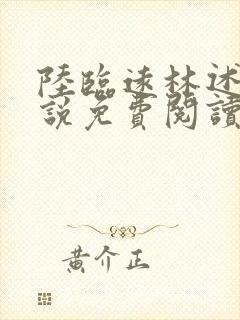 陸臨遠林述
說免費閱讀
黃介正